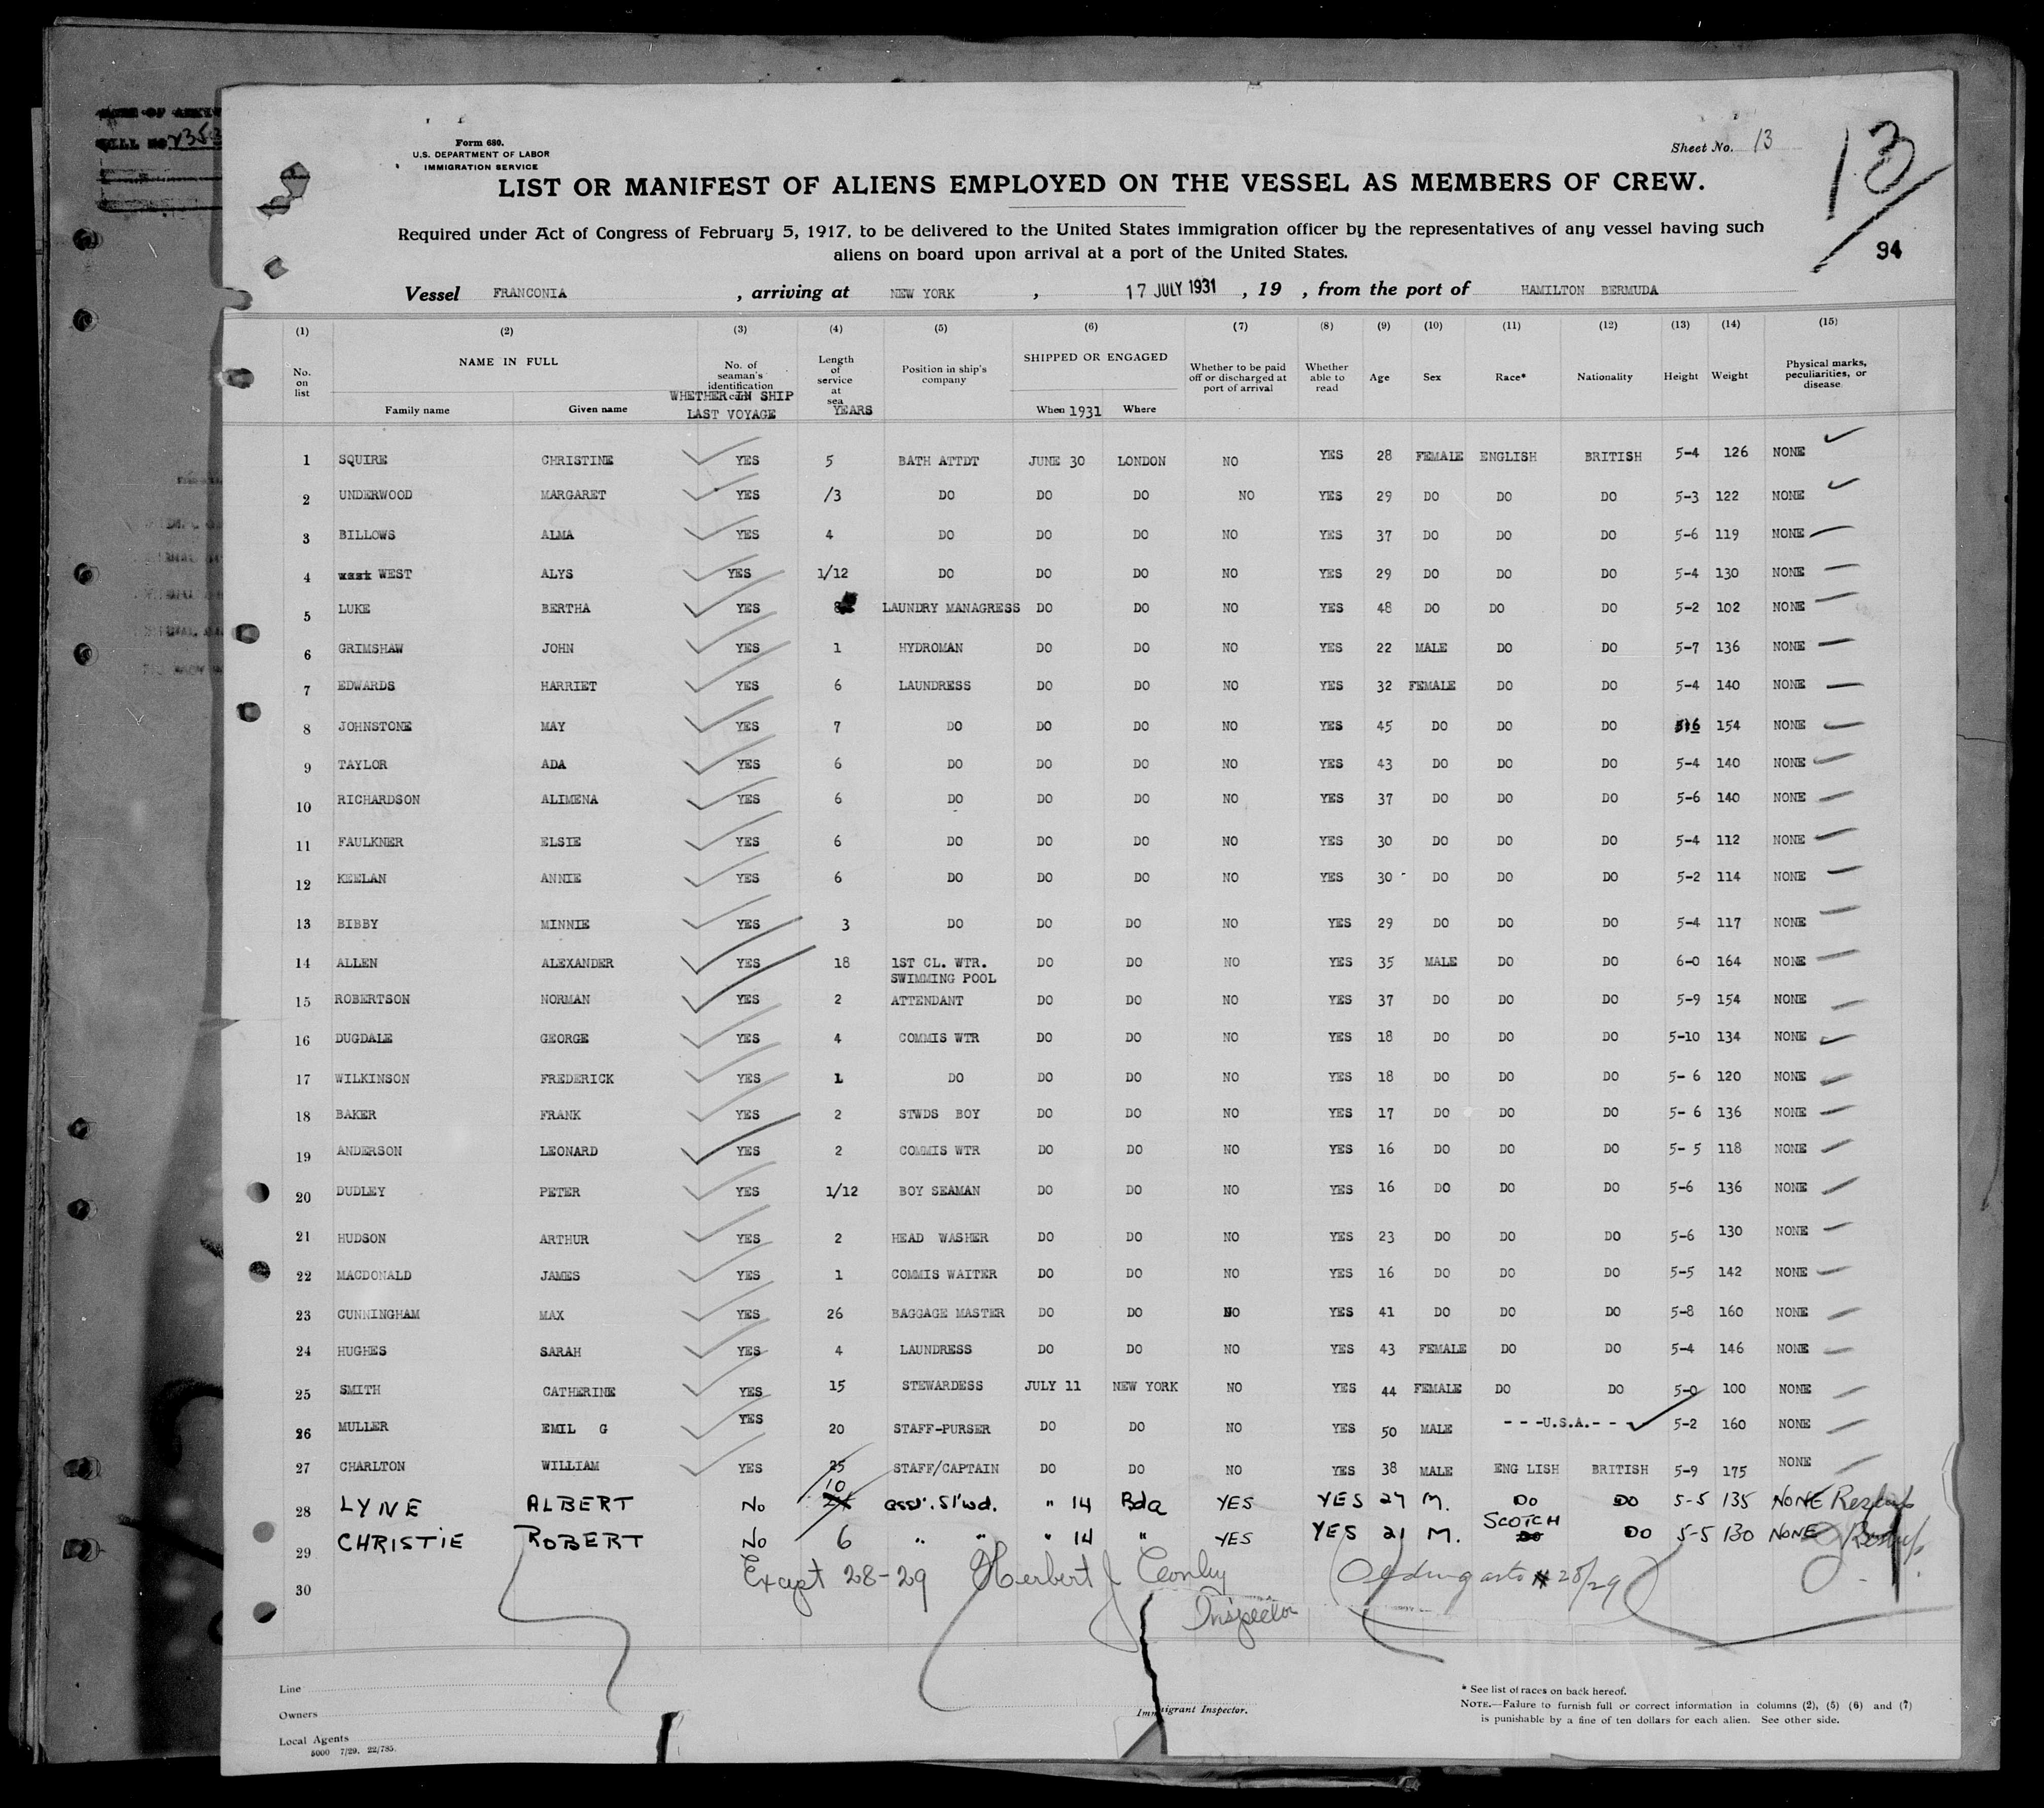 Form 680.
U.S. DEPARTMENT OF LABOR
IMMIGRATION SERVICE
Sheet No. 13
13
94
LIST OR MANIFEST OF ALIENS EMPLOYED ON THE VESSEL AS MEMBERS OF CREW.
Required under Act of Congress of February 5, 1917, to be delivered to the United States immigration officer by the representatives of any vessel having such
aliens on board upon arrival at a port of the United States.
Vessel FRANCONIA , arriving at NEW YORK , 17 JULY 1931 , 19 , from the port of HAMILTON BERMUDA
(1) (2) (3) (4) (5) (6) (7) (8) (9) (10) (11) (12) (13) (14) (15)
No. on list NAME IN FULL Family name Given name No. of seaman's identification card WHETHER IN SHIP LAST VOYAGE Length of service at sea YEARS Position in ship's company SHIPPED OR ENGAGED When 1931 Where Whether to be paid off or discharged at port of arrival Whether able to read Age Sex Race* Nationality Height Weight Physical marks, peculiarities, or disease
1 SQUIRE CHRISTINE YES 5 BATH ATTDT JUNE 30 LONDON NO YES 28 FEMALE ENGLISH BRITISH 5-4 126 NONE
2 UNDERWOOD MARGARET YES /3 DO DO DO NO YES 29 DO DO DO 5-3 122 NONE
3 BILLOWS ALMA YES 4 DO DO DO NO YES 37 DO DO DO 5-6 119 NONE
4 WEST ALYS YES 1/12 DO DO DO NO YES 29 DO DO DO 5-4 130 NONE
5 LUKE BERTHA YES LAUNDRY MANAGRESS DO DO NO YES 48 DO DO DO 5-2 102 NONE
6 GRIMSHAW JOHN YES 1 HYDROMAN DO DO NO YES 22 MALE DO DO 5-7 136 NONE
7 EDWARDS HARRIET YES 6 LAUNDRESS DO DO NO YES 32 FEMALE DO DO 5-4 140 NONE
8 JOHNSTONE MAY YES 7 DO DO DO NO YES 45 DO DO DO 5-6 154 NONE
9 TAYLOR ADA YES 6 DO DO DO NO YES 43 DO DO DO 5-4 140 NONE
10 RICHARDSON ALIMENA YES 6 DO DO DO NO YES 37 DO DO DO 5-6 140 NONE
11 FAULKNER ELSIE YES 6 DO DO DO NO YES 30 DO DO DO 5-4 112 NONE
12 KEELAN ANNIE YES 6 DO DO DO NO YES 30 DO DO DO 5-2 114 NONE
13 BIBBY MINNIE YES 3 DO DO DO NO YES 29 DO DO DO 5-4 117 NONE
14 ALLEN ALEXANDER YES 18 1ST CL. WTR. DO DO NO YES 35 MALE DO DO 6-0 164 NONE
SWIMMING POOL
15 ROBERTSON NORMAN YES 2 ATTENDANT DO DO NO YES 37 DO DO DO 5-9 154 NONE
16 DUGDALE GEORGE YES 4 COMMIS WTR DO DO NO YES 18 DO DO DO 5-10 134 NONE
17 WILKINSON FREDERICK YES 1 DO DO DO NO YES 18 DO DO DO 5- 6 120 NONE
18 BAKER FRANK YES 2 STWDS BOY DO DO NO YES 17 DO DO DO 5- 6 136 NONE
19 ANDERSON LEONARD YES 2 COMMIS WTR DO DO NO YES 16 DO DO DO 5- 5 118 NONE
20 DUDLEY PETER YES 1/12 BOY SEAMAN DO DO NO YES 16 DO DO DO 5-6 136 NONE
21 HUDSON ARTHUR YES 2 HEAD WASHER DO DO NO YES 23 DO DO DO 5-6 130 NONE
22 MACDONALD JAMES YES 1 COMMIS WAITER DO DO NO YES 16 DO DO DO 5-5 142 NONE
23 CUNNINGHAM MAX YES 26 BAGGAGE MASTER DO DO NO YES 41 DO DO DO 5-8 160 NONE
24 HUGHES SARAH YES 4 LAUNDRESS DO DO NO YES 43 FEMALE DO DO 5-4 146 NONE
25 SMITH CATHERINE YES 15 STEWARDESS JULY 11 NEW YORK NO YES 44 FEMALE DO DO 5-0 100 NONE
26 MULLER EMIL G YES 20 STAFF-PURSER DO DO NO YES 50 MALE - - -U.S.A.- - - 5-2 160 NONE
27 CHARLTON WILLIAM YES 25 STAFF/CAPTAIN DO DO NO YES 38 MALE ENG LISH BRITISH 5-9 175 NONE
28 LYNE ALBERT No 10 asst. St'wd. " 14 Bda YES YES 27 M. DO DO 5-5 135 NONE
29 CHRISTIE ROBERT No 6 " " " 14 " YES YES 21 M. SCOTCH DO 5-5 130 NONE
30
Except 28-29 Herbert J
Inspector
Line
Owners
Local Agents
5000 7/29. 22/785.
Immigrant Inspector.
* See list of races on back hereof.
NOTE.—Failure to furnish full or correct information in columns (2), (5) (6) and (7)
is punishable by a fine of ten dollars for each alien. See other side.